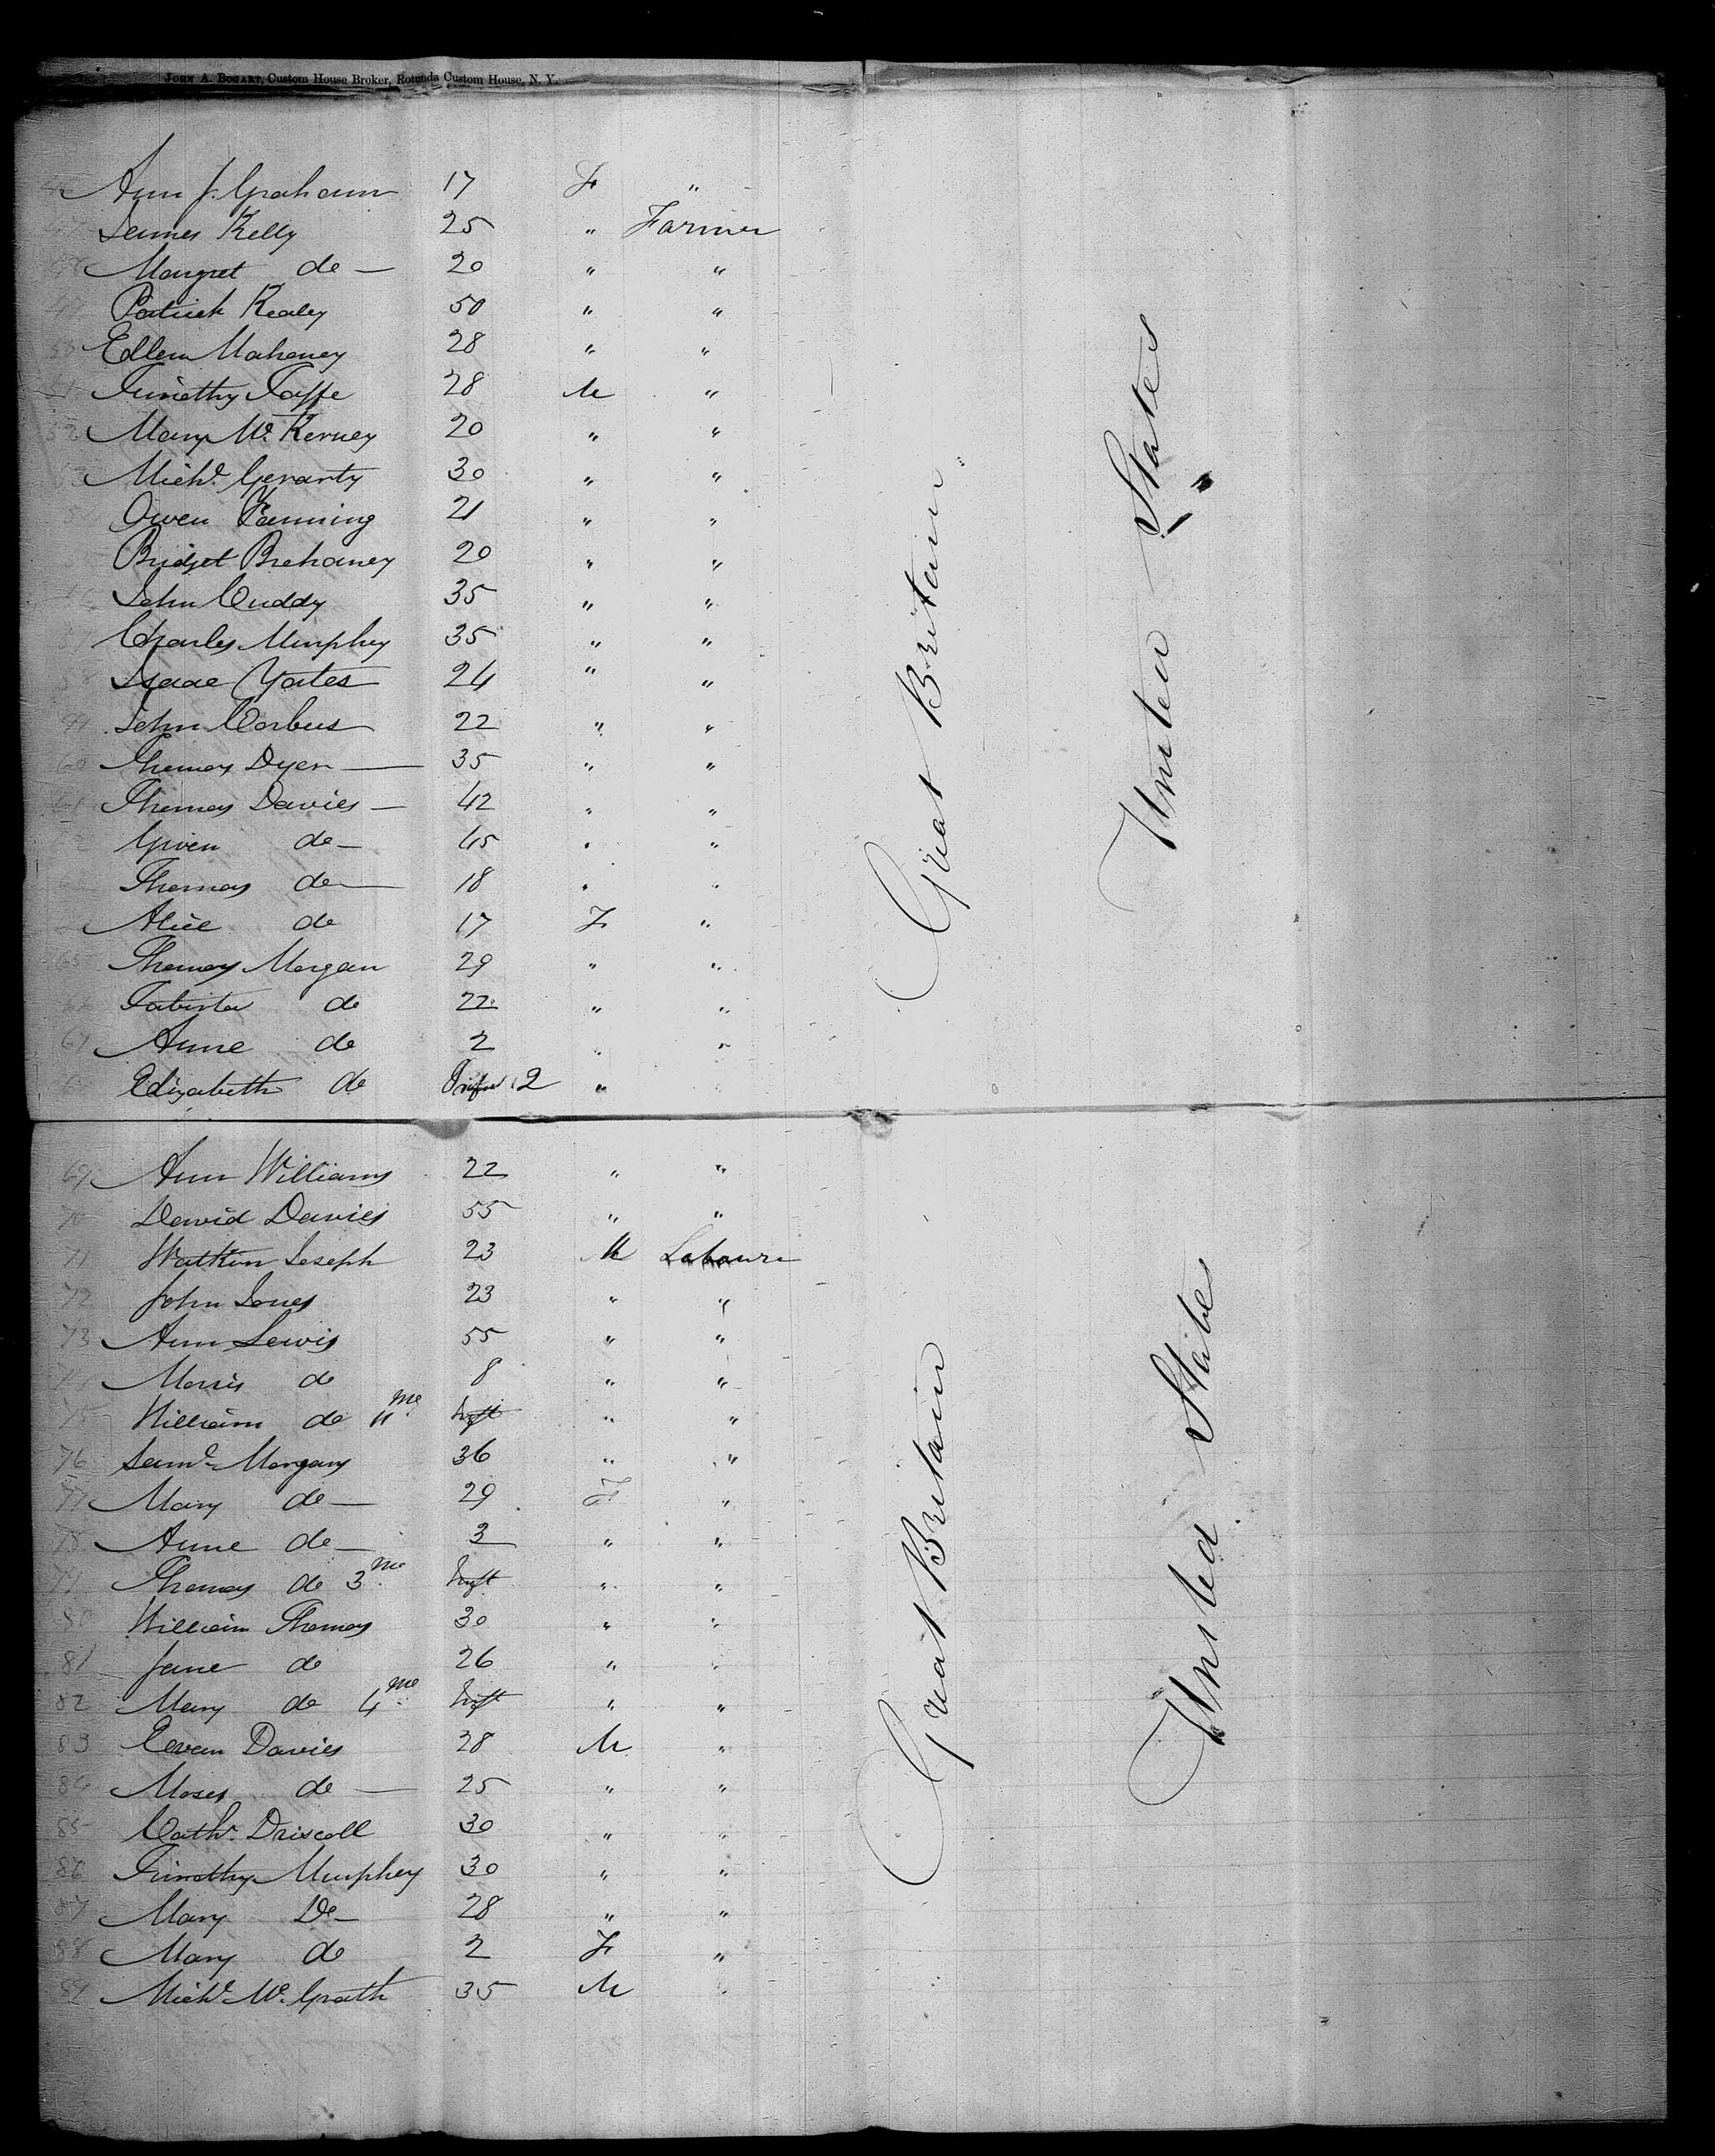 JOHN A. BOGART, Custom House Broker, Rotunda Custom House, N. Y.
Ann J. Graham 17 F "
James Kelly 25 " Farmer
Margret do — 20 " "
Patrick Kealey 50 " "
Ellen Mahoney 28 " "
Timothy Taffe 28 M "
52 Mary Mc. Kerney 20 " "
Michl. Gerarty 30 " "
Owen Fanning 21 " "
Bridget Brehaney 20 " "
John Cuddy 35 " "
Charles Murphey 35 " "
58 Isaac Yates 24 " "
John Corbus 22 " "
60 Thomas Dyer — 35 " "
61 Thomas Davies — 42 " "
do — 45 " "
Thomas do — 18 " "
Alice do 17 F "
65 Thomas Morgan 29 " "
do 22 " "
67 Anne do 2 " "
Elizabeth do 2 "
69 Ann Williams 22 " "
70 David Davies 55 " "
71 Watkin Joseph 23 M Laboure
72 John Jones 23 " "
73 Ann Lewis 55 " "
Morris do 8 " "
75 William do 11 mo Inft " "
76 Saml. Morgan 36 " "
77 Mary do — 29 F "
78 Anne do — 3 " "
79 Thomas do 3 mo Inft " "
80 William Thomas 30 " "
81 Jane do 26 " "
82 Mary do 4 mo Inft " "
83 Eevan Davies 28 M "
84 Moses do — 25 " "
85 Cath. Driscoll 30 " "
86 Timothy Murphey 30 " "
87 Mary Do — 28 " "
88 Mary do 2 F "
89 Michl. Mc. Grath 35 M "
Great Britain
United States
Great Britain
United States